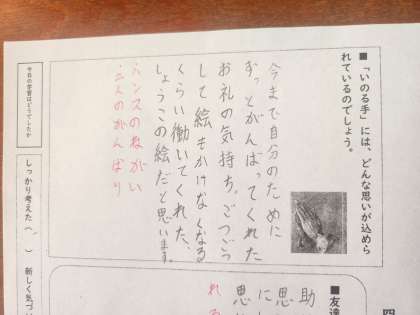 ■「いのる手」には、どんな思いが込めら
れているのでしょう。
今まで自分のために
ずっとがんばってくれた
お礼の気持ち。ごつごつ
して絵もかけなくなる
くらい働いてくれた、
しょうこの絵だと思います。
ハンスのねがい
二人のがんばり
今日の学習はどうでしたか
しっかり考えた( )
新しく気づ
四
■友達
助
思
に
思
れる